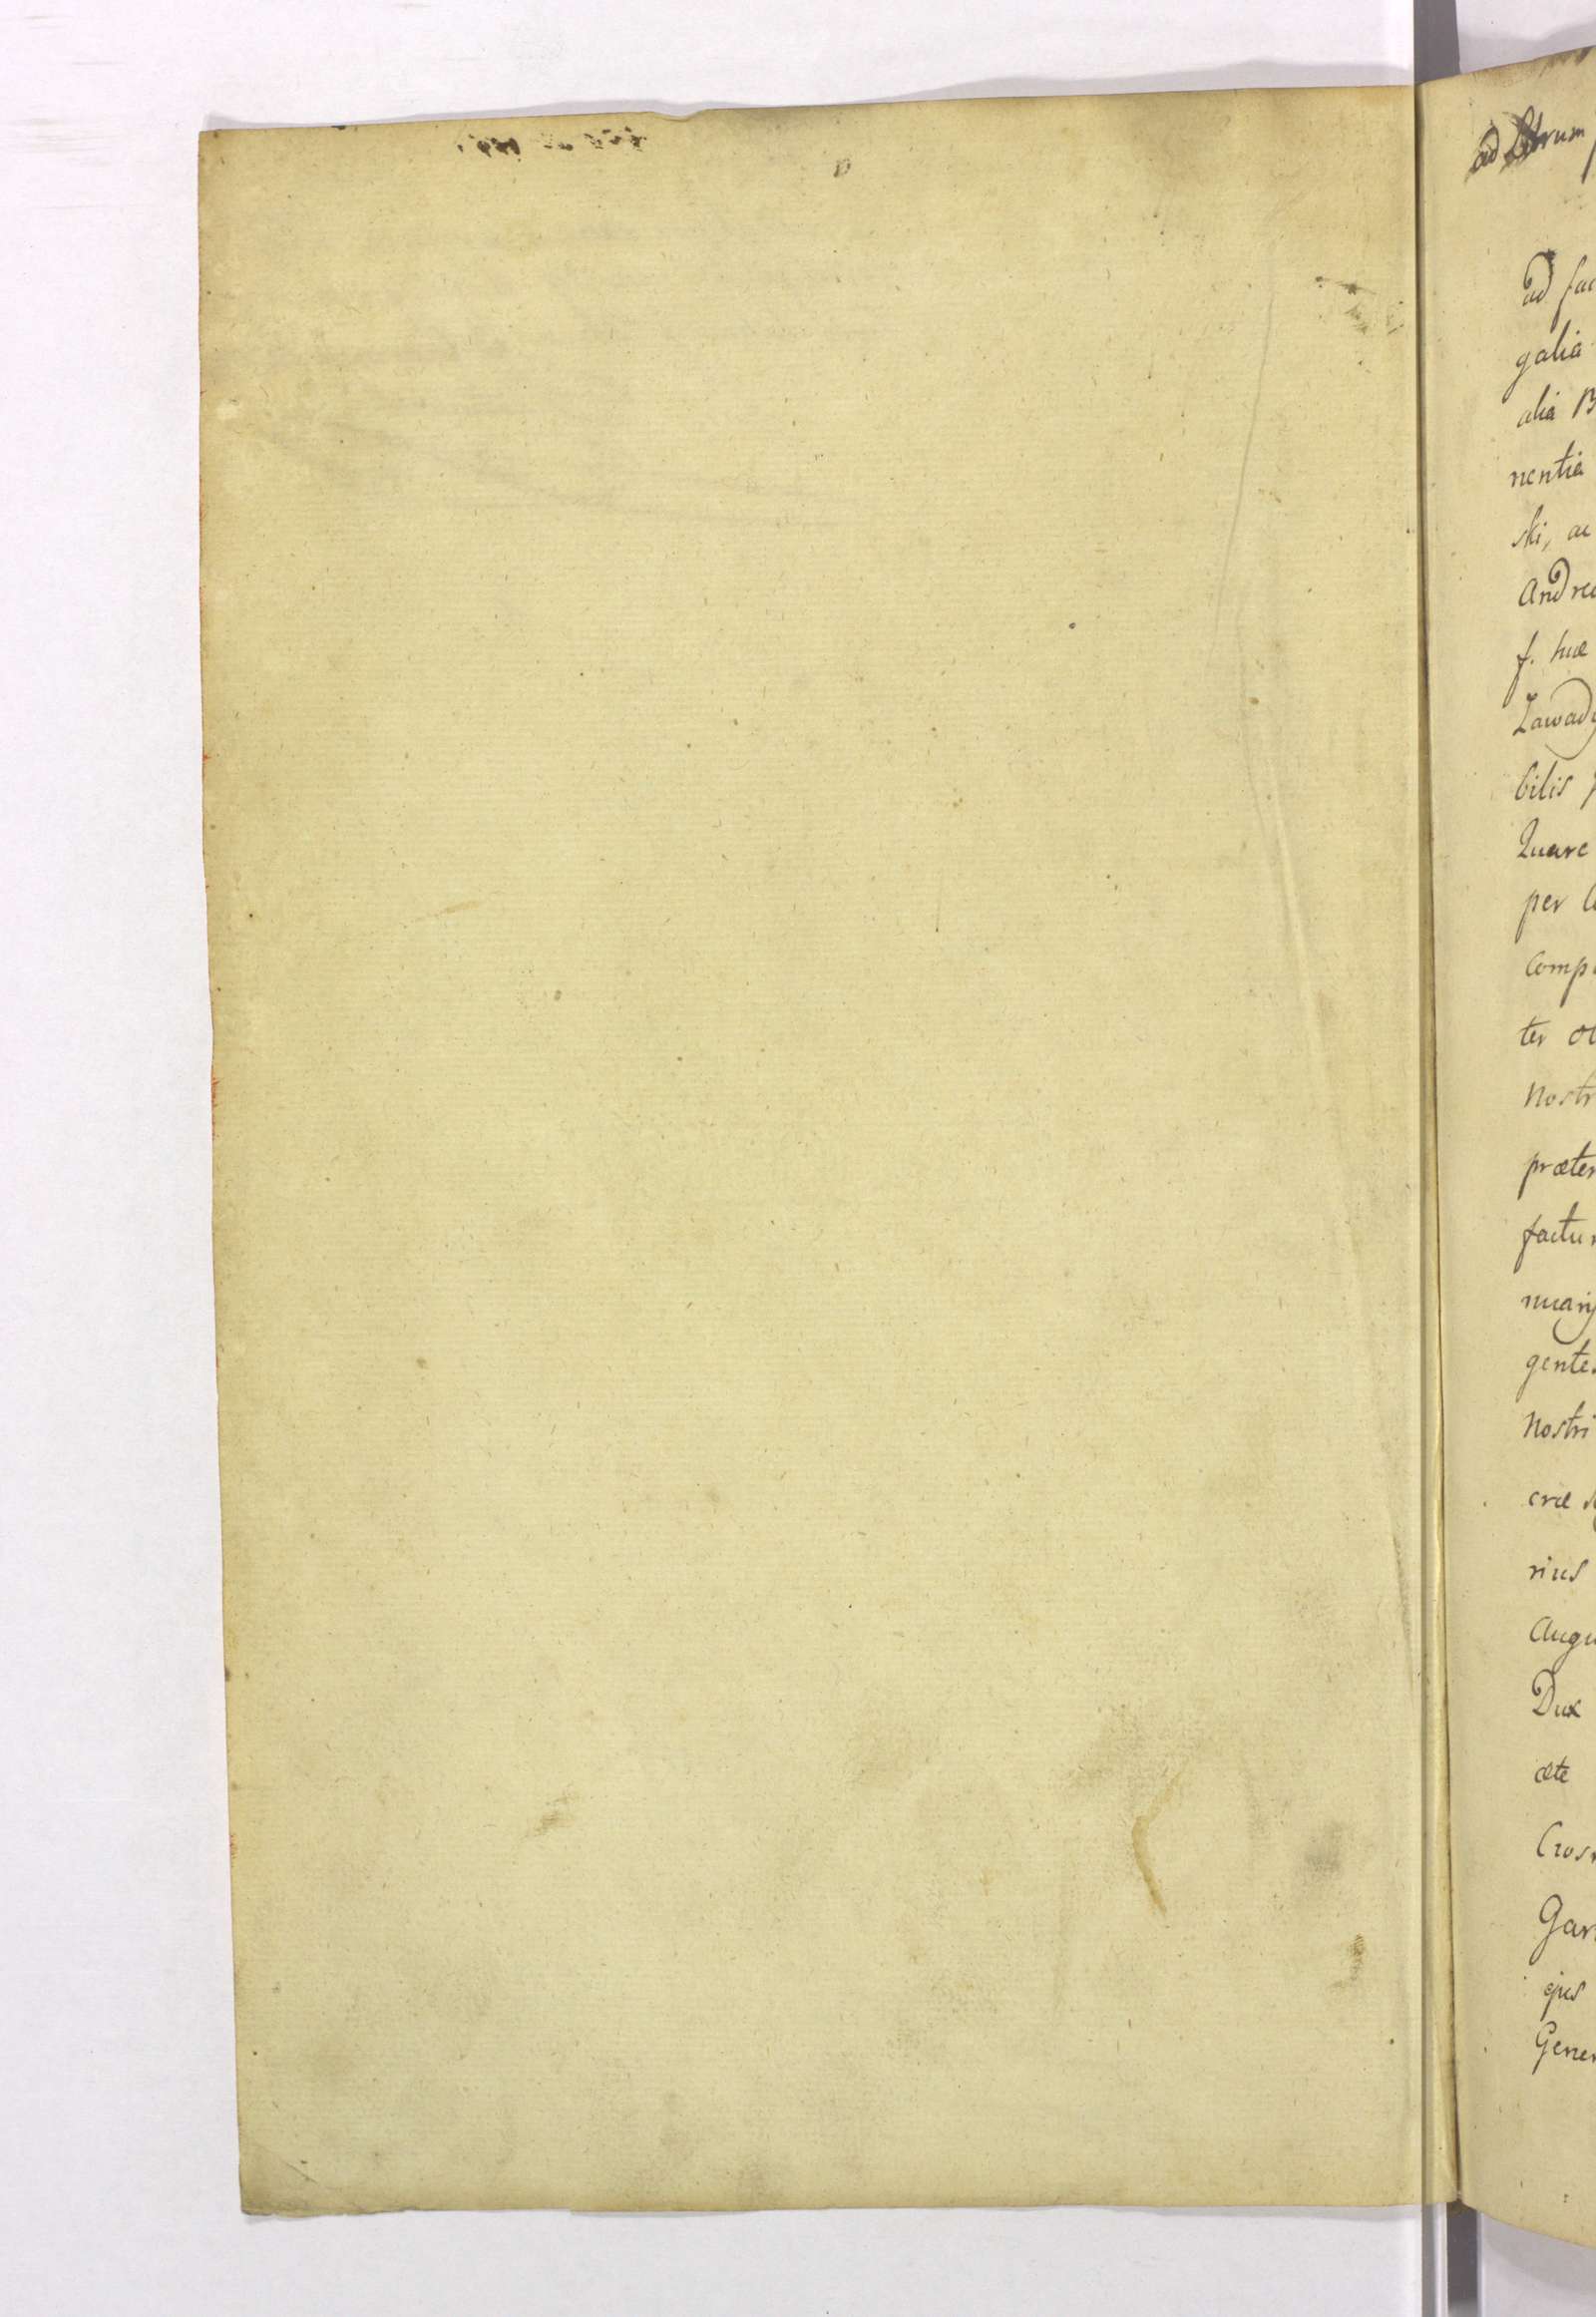 ad librum
ad fac
galia
alia B
nentia
ski, ac
Andrea
f. huæ
Zawady
bilis
Quare
per
Comp
ter ob
Nostr
præter
factu
nuarij
gentes
Nostri
cræ
rius
Augu
Dux
æte
Cros
Gar
ejus
Gener